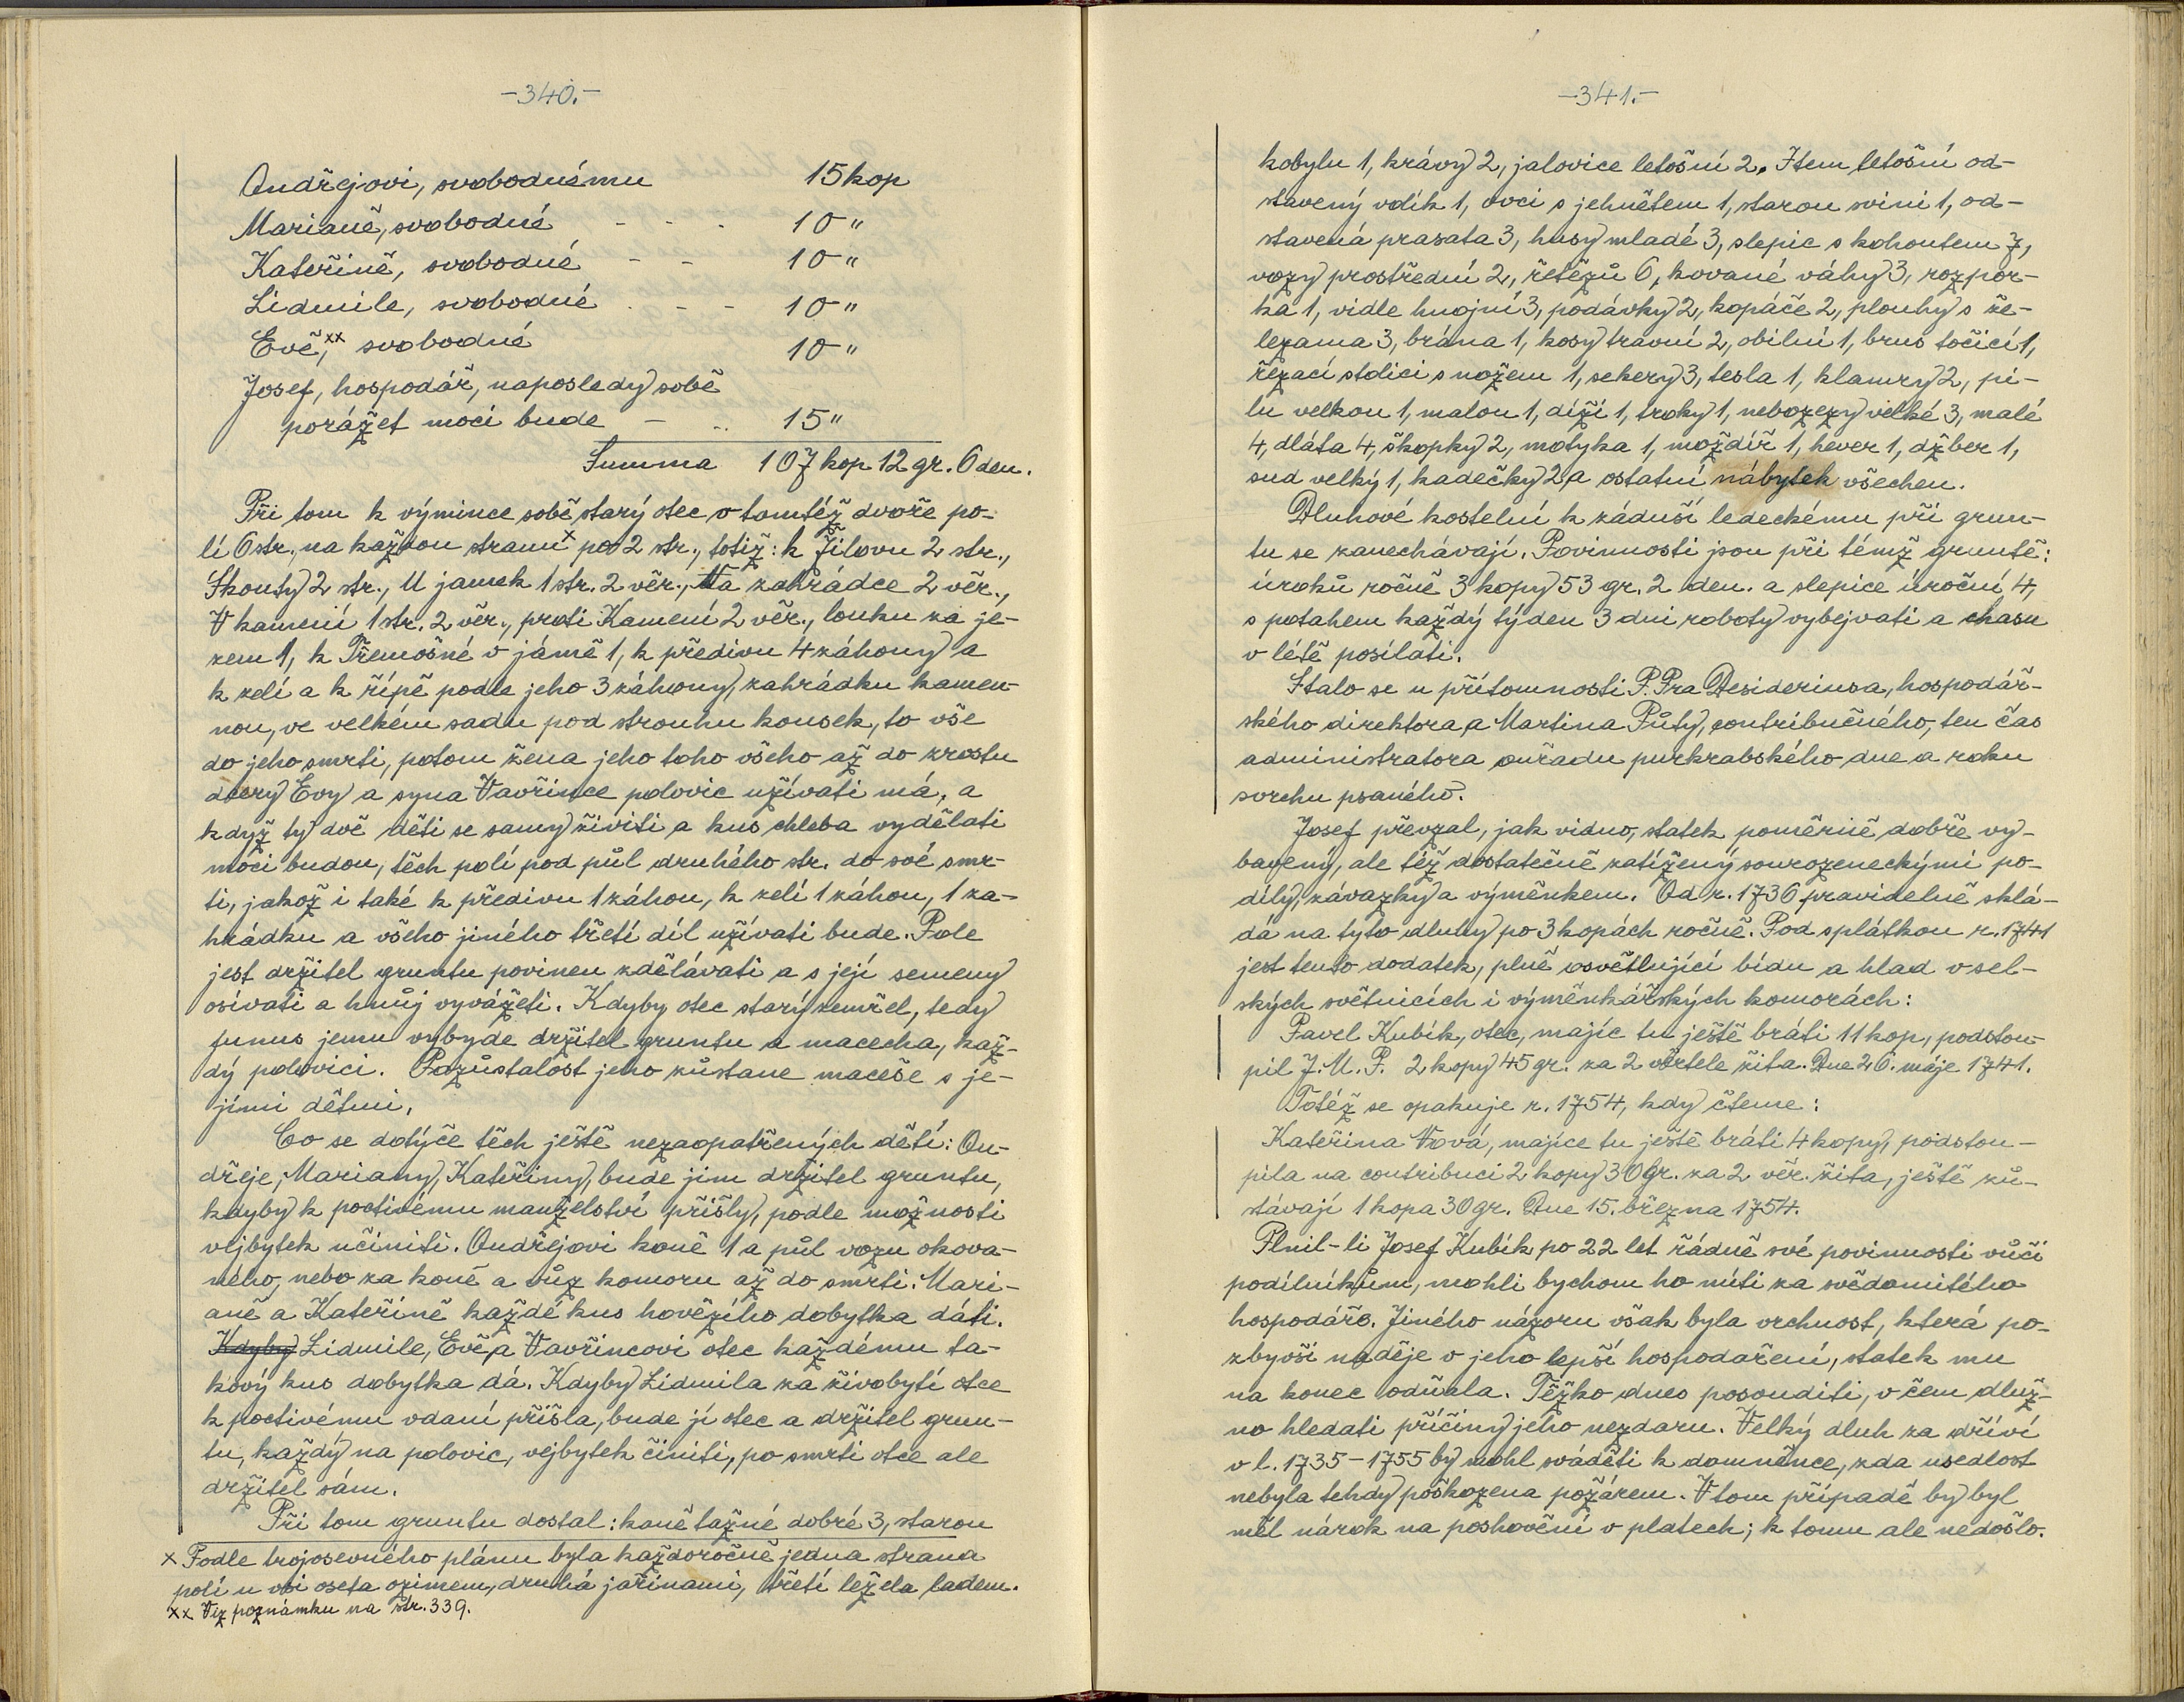 -340.-
Ondřejovi, svobodnému 15 kop
Marianě, svobodné - - - 10 "
Kateřině, svobodné - - 10 "
Lidmile, svobodné . - - 10 "
Evě,xx svobodné 10 "
Josef, hospodář, naposledy sobě
porážet moci bude - .. 15 "
Summa 107 kop 12 gr. 6 den.
Při tom k výmince sobě starý otec v tomtéž dvoře po-
lí 6 str., na každou stranux po 2 str., totiž: k Jílovu 2 str.,
Skouty 2 str., U jamek 1 str. 2 věr., Na zahrádce 2 věr.,
V kamení 1 str. 2 věr., proti Kamení 2 věr., louku za je-
zem 1, k Třemošné v jámě 1, k předivu 4 záhony a
k zelí a k řípě podle jeho 3 záhony, zahrádku kamen-
nou, ve velkém sadu pod strouhu kousek, to vše
do jeho smrti, potom žena jeho toho všeho až do zrostu
dcery Evy a syna Vavřince polovic užívati má, a
když ty dvě děti se samy živiti a kus chleba vydělati
moci budou, těch polí pod půl druhého str. do své smr-
ti, jakož i také k předivu 1 záhon, k zelí 1 záhon, 1 za-
hrádku a všeho jiného třetí díl užívati bude. Pole
jest držitel gruntu povinen zdělávati a s její semeny
osívati a hnůj vyvážeti. Kdyby otec starý zemřel, tedy
funus jemu vybyde držitel gruntu a macecha, kaž-
dý polovici. Pozůstalost jeho zůstane maceše s je-
jími dětmi.
Co se dotýče těch ještě nezaopatřených dětí: On-
dřeje, Mariany, Kateřiny, bude jim držitel gruntu,
kdyby k poctivému manželství přišly, podle možnosti
vejbytek učiniti. Ondřejovi koně 1 a půl vozu okova-
ného, nebo za koně a vůz komoru až do smrti. Mari-
aně a Kateřině každé kus hovězího dobytka dáti.
Kdyby Lidmile, Evě, a Vavřincovi otec každému ta-
kový kus dobytka dá. Kdyby Lidmila za živobytí otce
k poctivému vdaní přišla, bude jí otec a držitel grun-
tu, každý na polovic, vejbytek činiti, po smrti otce ale
držitel sám.
Při tom gruntu dostal: koně tažné dobré 3, starou
x Podle trojosevného plánu byla každoročně jedna strana
polí u vsi oseta ozimem, druhá jařinami, třetí ležela ladem.
xx Viz poznámku na str. 339.
-341.-
kobylu 1, krávy 2, jalovice letošní 2. Item letošní od-
stavený volík 1, ovci s jehnětem 1, starou svini 1, od-
stavená prasata 3, husy mladé 3, slepic s kohoutem 7,
vozy prostřední 2, řetězů 6, kované váhy 3, rozpor-
ka 1, vidle hnojní 3, podávky 2, kopáče 2, plouhy s že-
lezama 3, brána 1, kosy travní 2, obilní 1, brus točící 1,
řezací stolici s nožem 1, sekery 3, tesla 1, klamry 2, pi-
lu velkou 1, malou 1, díži 1, troky 1, nebozezy velké 3, malé
4, dláta 4, škopky 2, motyka 1, moždíř 1, hever 1, džber 1,
sud velký 1, kadečky 2 a ostatní nábytek všechen.
Dluhové kostelní k záduší ledeckému při grun-
tu se zanechávají. Povinnosti jsou při témž gruntě:
úroků ročně 3 kopy 53 gr. 2 den. a slepice úroční 4,
s potahem každý týden 3 dni roboty vybejvati a chasu
v létě posílati.
Stalo se u přítomnosti P. Pra Desideriusa, hospodář-
ského direktora, a Martina Půty, contribučného, ten čas
administratora ouřadu purkrabského dne a roku
svrchu psaného.
Josef převzal, jak vidno, statek poměrně dobře vy-
bavený, ale též dostatečně zatížený sourozeneckými po-
díly, závazky a výměnkem. Od r. 1736 pravidelně sklá-
dá na tyto dluhy po 3 kopách ročně. Pod splátkou r. 1741
jest tento dodatek, plně osvětlující bídu a hlad v sel-
ských světnicích i výměnkářských komorách:
Pavel Kubík, otec, majíc tu ještě bráti 11 kop, podstou-
pil J. M. P. 2 kopy 45 gr. za 2 věrtele žita. Dne 26. máje 1741.
Totéž se opakuje r. 1754, kdy čteme:
Kateřina Vová, majíce tu ještě bráti 4 kopy, podstou-
pila na contribuci 2 kopy 30 Gr. za 2 věr. žita, ještě zů-
stávají 1 kopa 30 gr. Dne 15. března 1754.
Plnil-li Josef Kubík po 22 let řádně své povinnosti vůči
podílníkům, mohli bychom ho míti za svědomitého
hospodáře. Jiného názoru však byla vrchnost, která po-
zbyvši naděje v jeho lepší hospodaření, statek mu
na konec odňala. Těžko dnes posouditi, v čem dluž-
no hledati příčiny jeho nezdaru. Velký dluh za dříví
v l. 1735-1755 by mohl sváděti k domněnce, zda usedlost
nebyla tehdy poškozena požárem. V tom případě by byl
měl nárok na poshovění v platech; k tomu ale nedošlo.